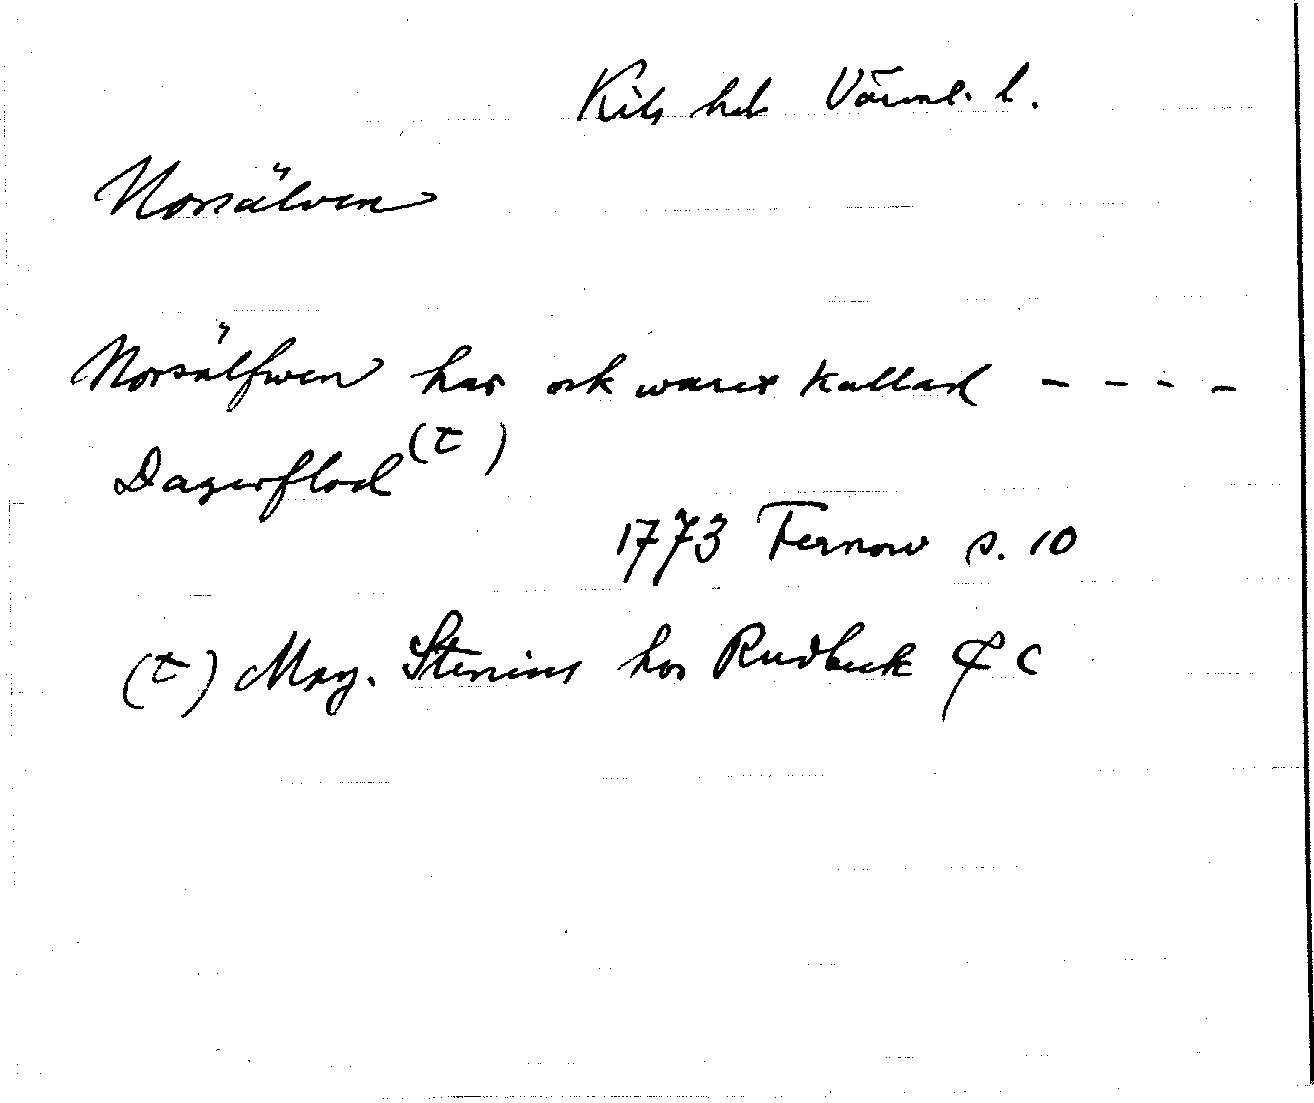 Kils hd Värml. l.
Norsälven
Norsälfwen har ock warit kallad - - - -
Dagerflod (t)
1773 Fernow s. 10
(t) Mag. Stenius hos Rudbeck &c